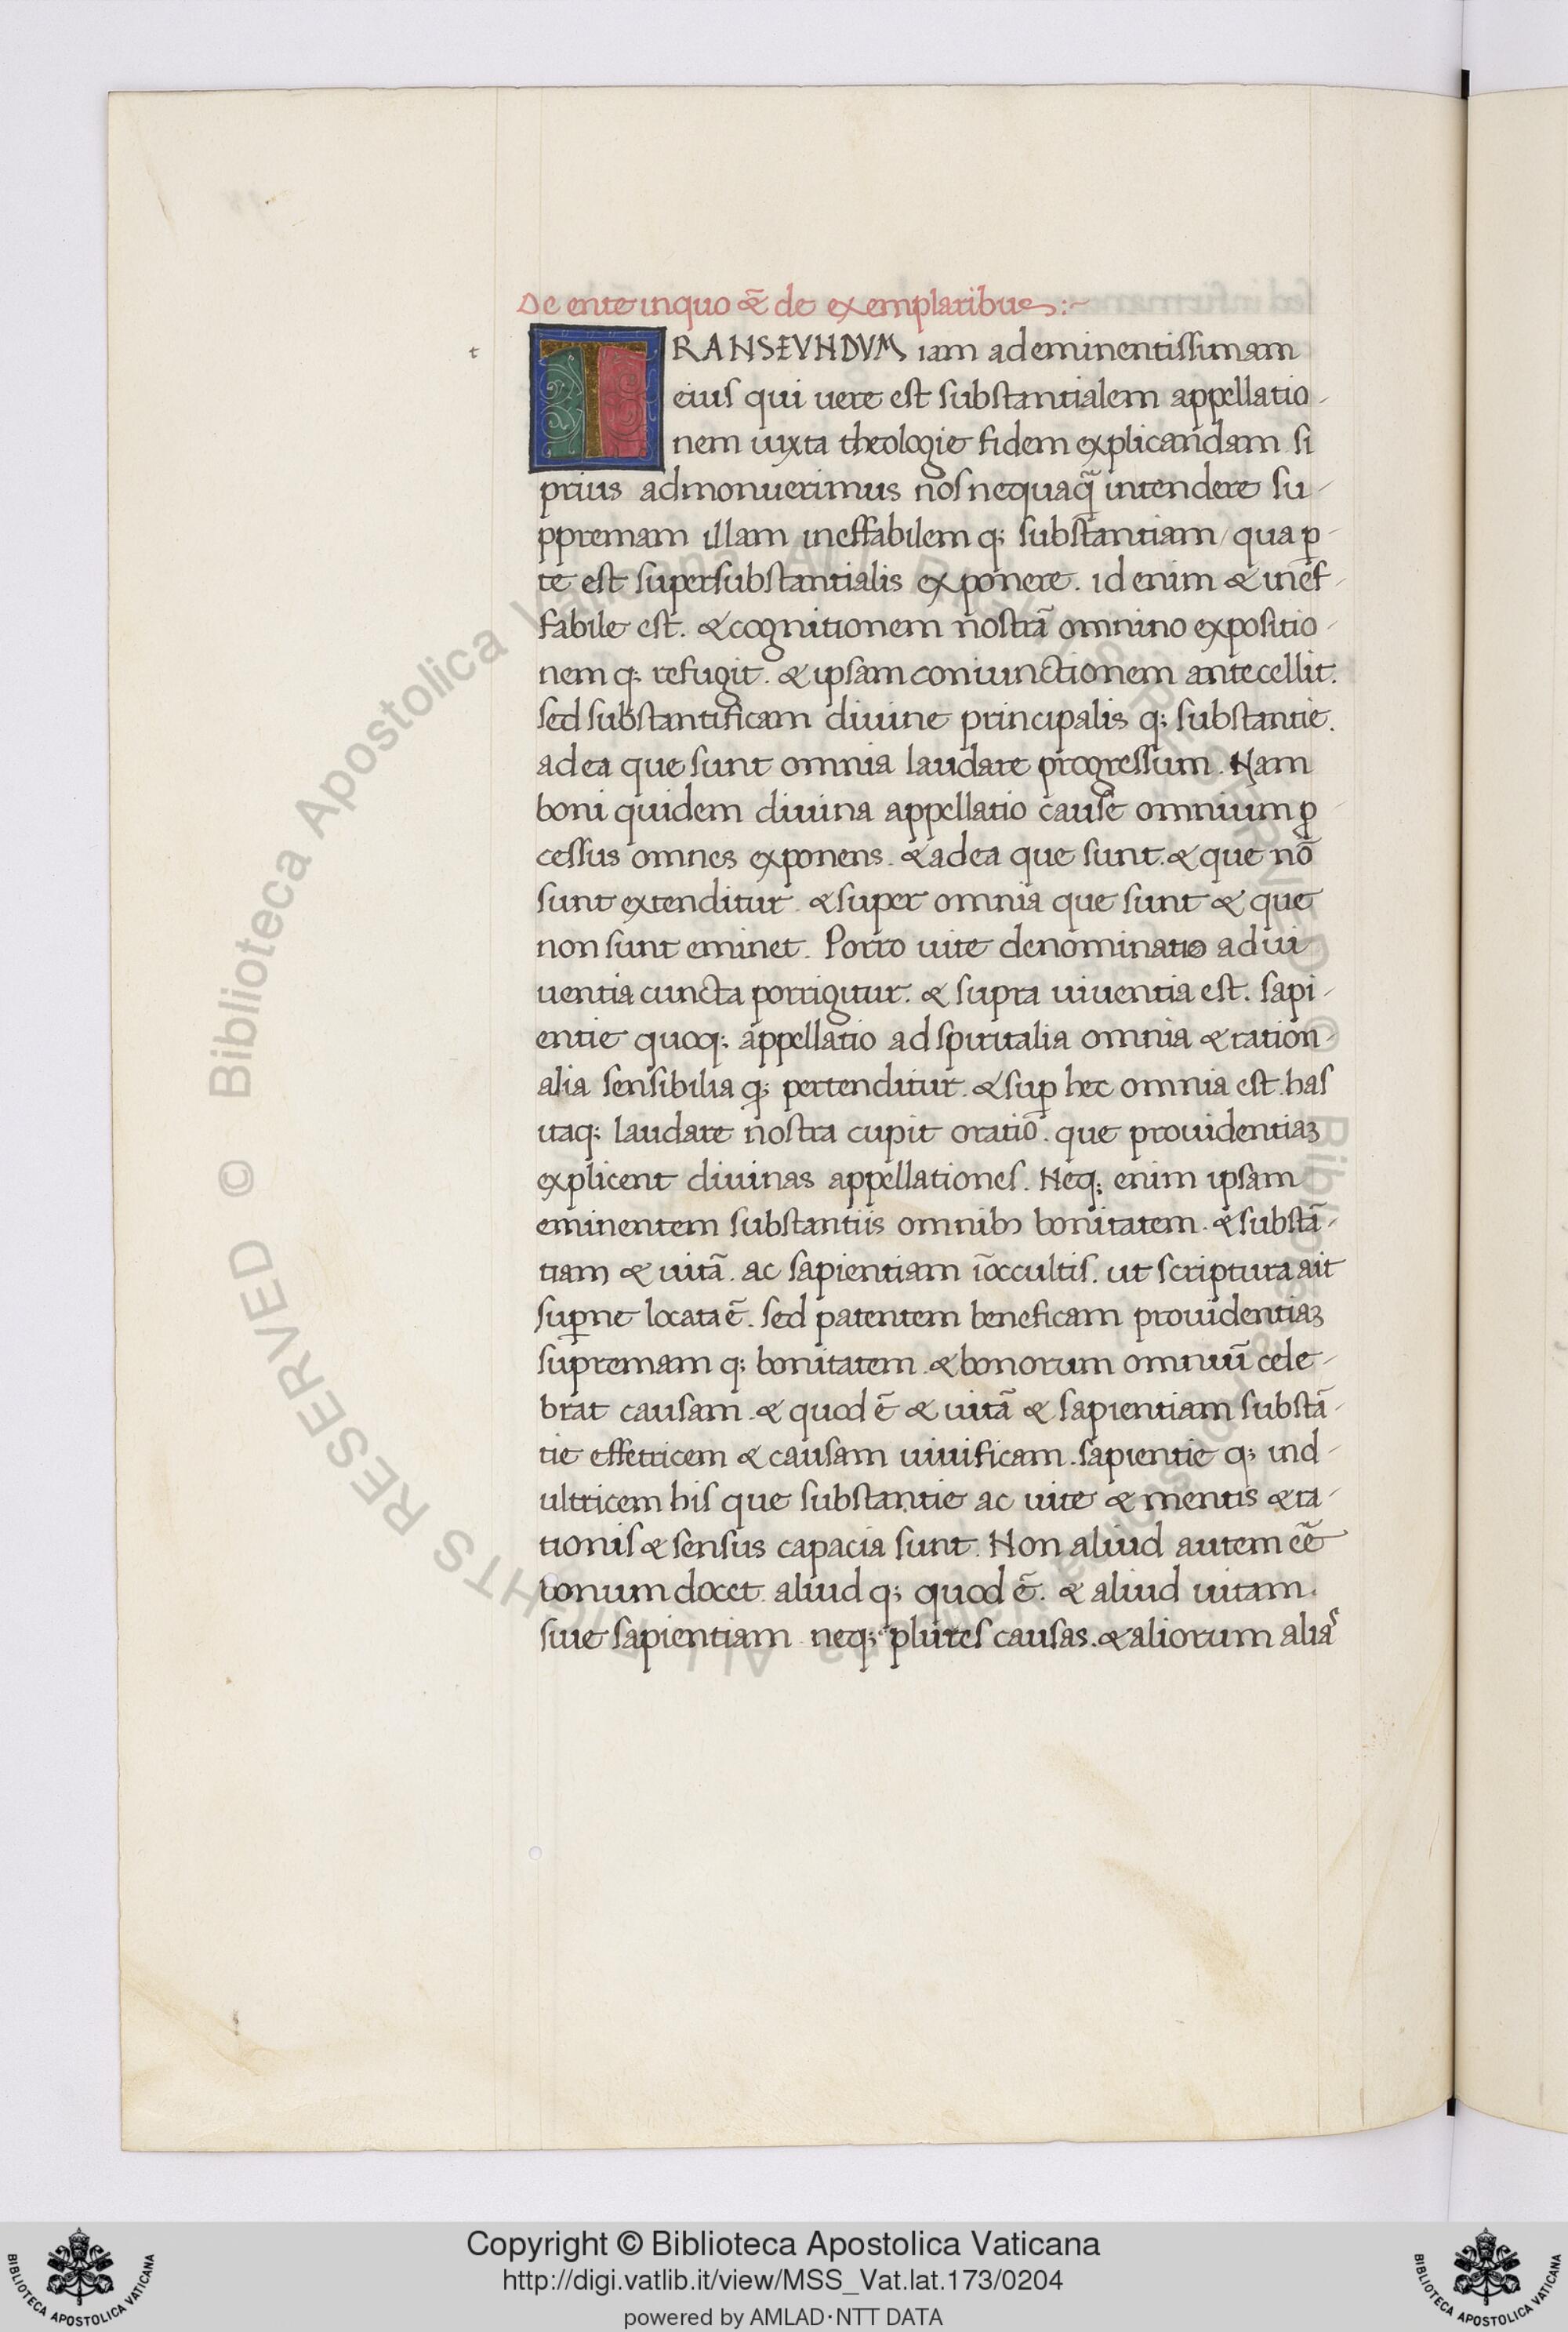 De ente in quo & de exemplaribus :~
t
TRANSEVNDVM iam ad eminentissimam
eius qui uere est substantialem appellatio-
nem iuxta theologie fidem explicandam si
prius admonuerimus nos nequaq̃ intendere su-
ppremam illam ineffabilem q; substantiam / qua ꝑ-
te est supersubstantialis exponere. id enim & inef-
fabile est. & cognitionem nostrã omnino expositio-
nem q; refugit. & ipsam coniunctionem antecellit.
sed substantificam diuine principalis q; substantie.
ad ea que sunt omnia laudare progressum. Nam
boni quidem diuina appellatio cause omnium ꝓ-
cessus omnes exponens. & ad ea que sunt. & que nõ
sunt extenditur. & super omnia que sunt & que
non sunt eminet. Porro uite denominatio ad ui-
uentia cuncta porrigitur. & supra uiuentia est. sapi-
entie quoq; appellatio ad spiritalia omnia & ration-
alia sensibilia q; pertenditur. & suꝑ hec omnia est. has
itaq; laudare nostra cupit oratiõ. que prouidentiaꝫ
explicent diuinas appellationes. Neq; enim ipsam
eminentem substantiis omnibꝰ bonitatem. & substã-
tiam & uitã. ac sapientiam ĩoccultis. ut scriptura ait
suꝑne locata ẽ. sed patentem beneficam prouidentiaꝫ
supremam q; bonitatem. & bonorum omniũ cele-
brat causam. & quod ẽ & uitã & sapientiam substã-
tie effetricem & causam uiuificam. sapientie q; ind-
ultricem his que substantie ac uite & mentis & ra-
tionis & sensus capacia sunt. Non aliud autem eẽ
bonum docet. aliud q; quod ẽ. & aliud uitam.
siue sapientiam neq; plures causas. & aliorum alias
© Biblioteca Apostolica Vaticana ALL RIGHTS RESERVED
Copyright © Biblioteca Apostolica Vaticana
http://digi.vatlib.it/view/MSS_Vat.lat.173/0204
powered by AMLAD·NTT DATA
BIBLIOTECA APOSTOLICA VATICANA
BIBLIOTECA APOSTOLICA VATICANA